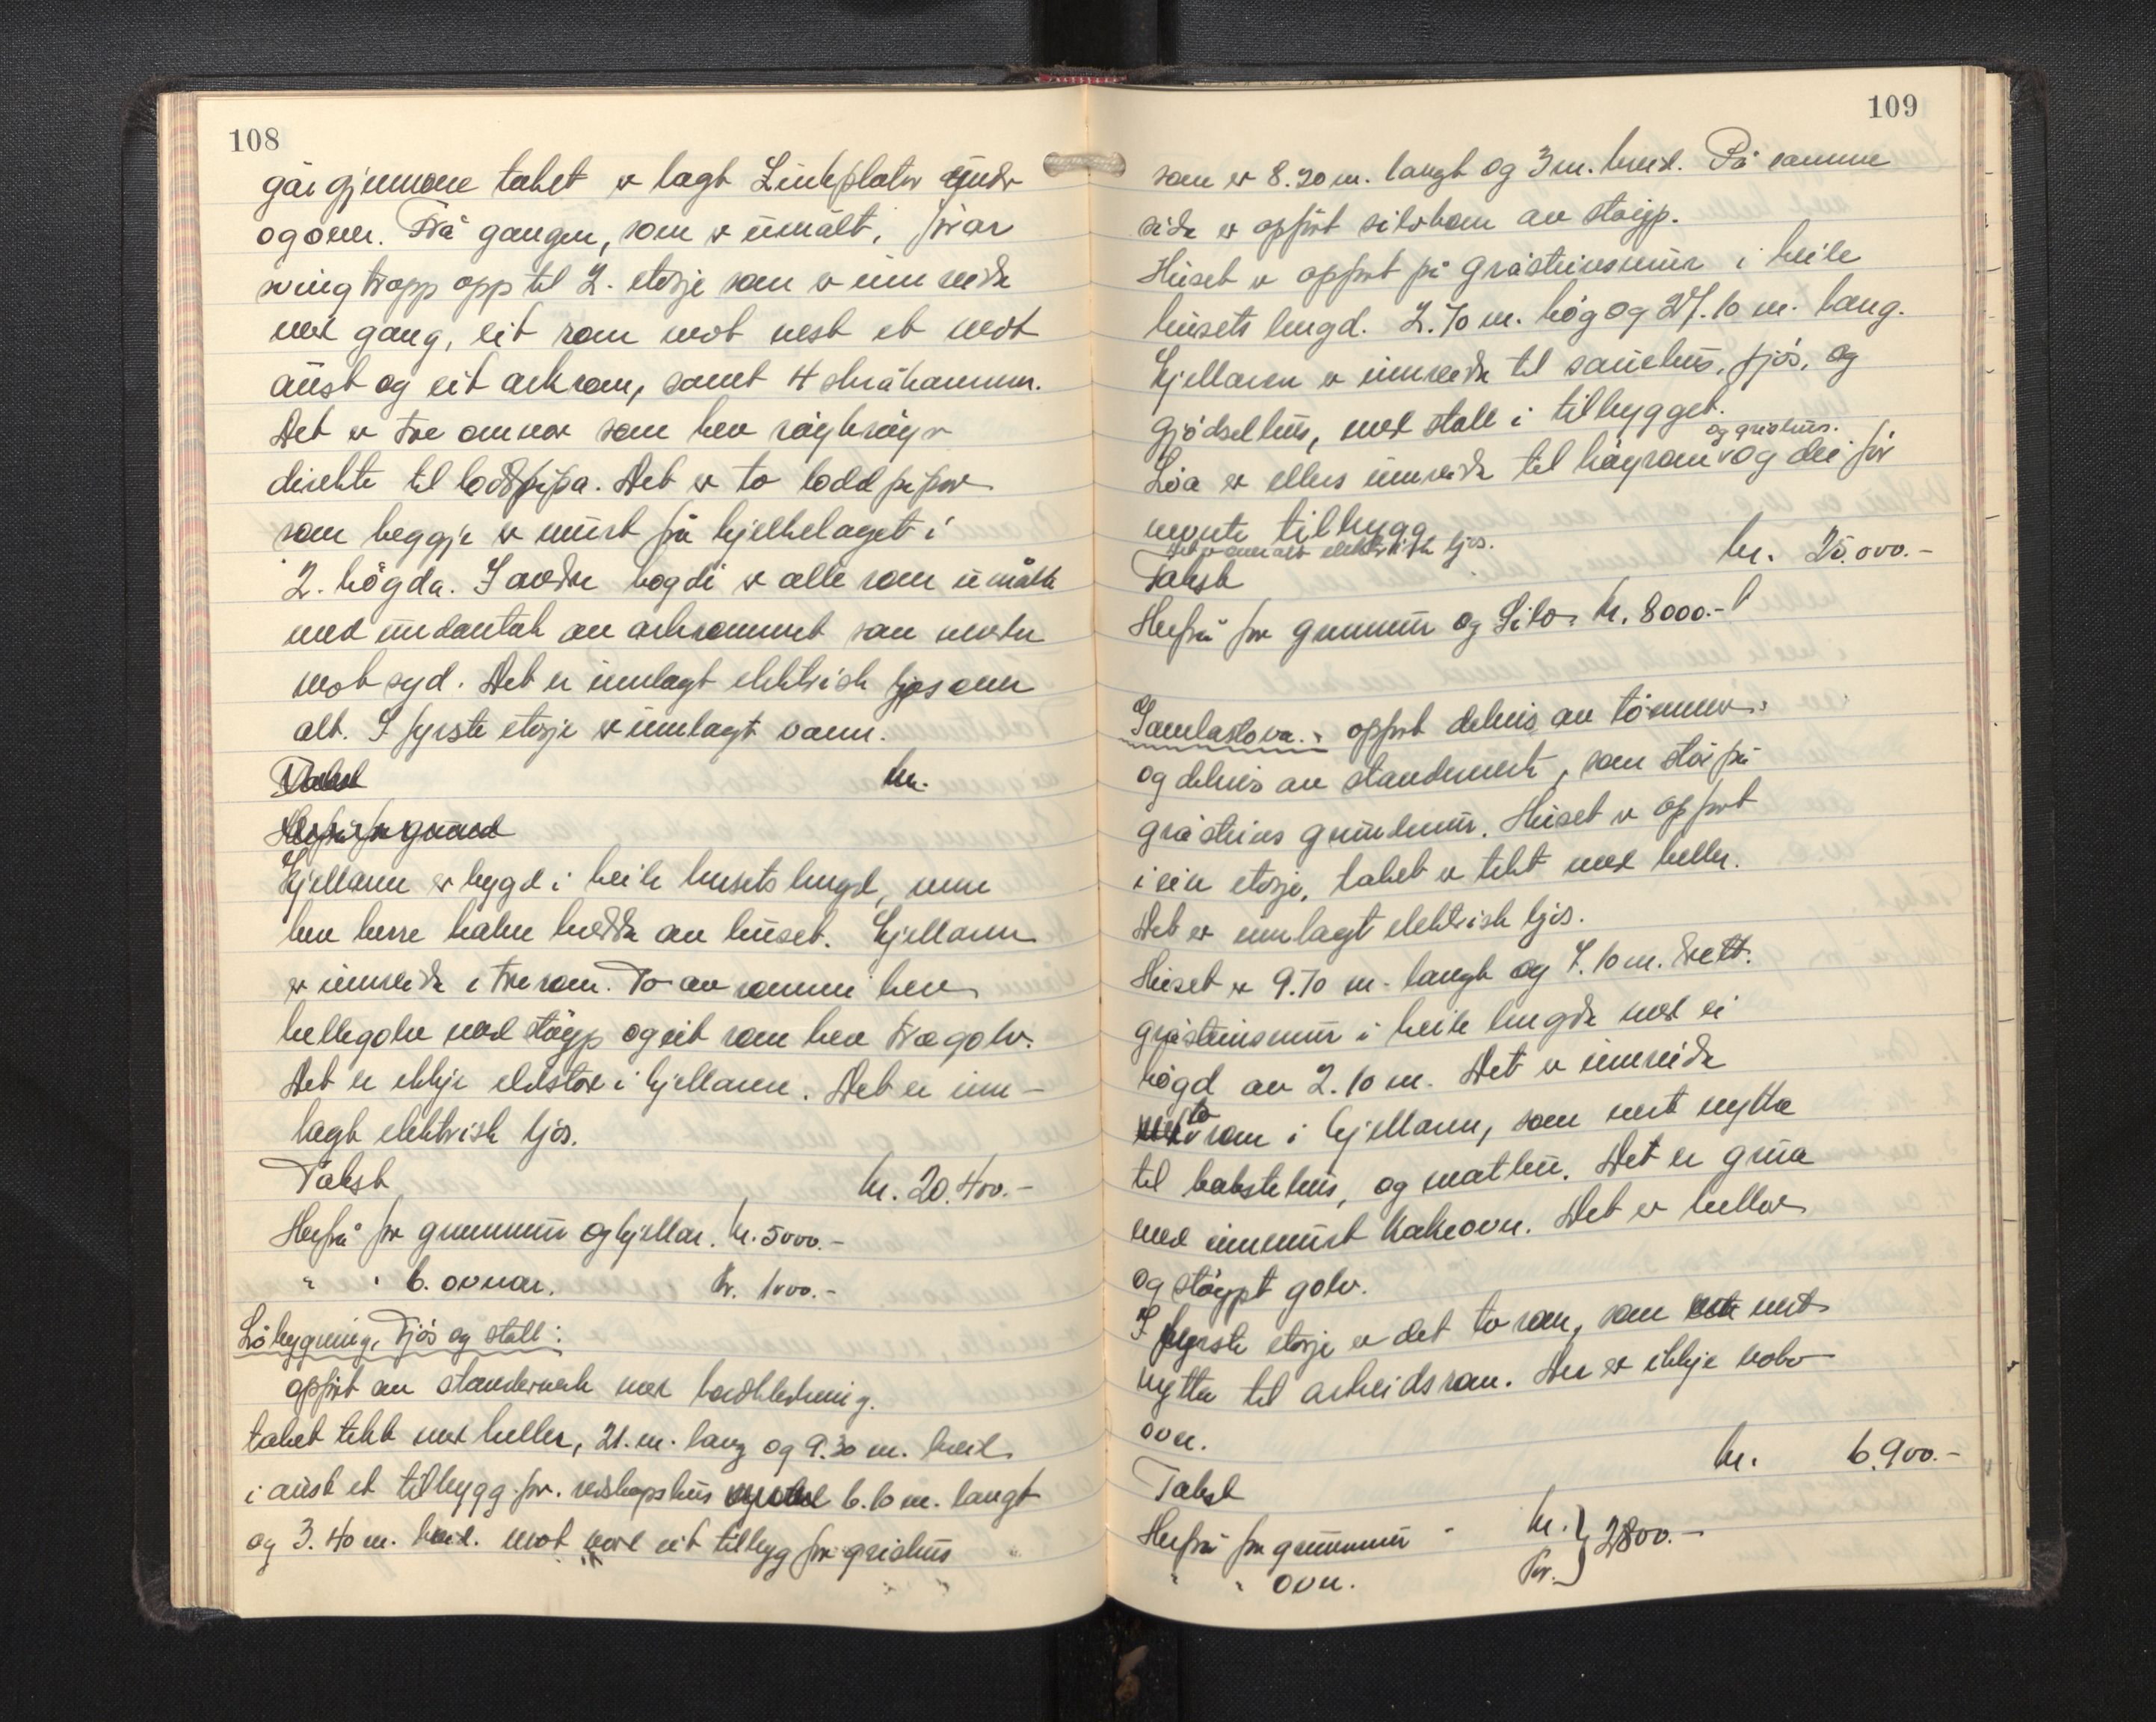 108
går gjennom taket er lagt Zinkplator under
og over. Frå gangen, som er umålt, förar
svingtropp opp til 2. etasje som er innreida
med gang, eit rom mot vest et mot
aust og eit arkrom, samt 4 skråkammer.
Det er tre omnar som hev röykröyr
direkte til loddpipa. Det er to loddpipor
som beggje er murt frå bjelkelaget i
2. högda. I andre hogdi er alle rom umålte
med undantak av arkrommet som vender
mot syd. Det er innlagt elektrisk ljos over
alt. I fyrste etasje er innlagt vann.
Takst kr.
Herfrå for grunnd
Kjellaren er bygd i heile husets lengd, men
hev berre halve bredda av huset. Kjellaren
er innreida i tre rom. To av rommi hev
hellegolv med stöyp og eit rom hev tregolv.
Det er ikkje eldstad i kjellaren. Det er inn-
lagt elektrisk ljos.
Takst kr. 20.400.-
Herfrå for grunnmur og kjellar. kr. 5000.-
" " 6. ovnar. kr. 1000.-
Löbygning, Fjös og stall:
oppfört av standerverk med bordkledning.
taket tekt med heller, 21. m. lang og 9.30 m. breid
i aust et tilbygg for. reidskapshus 6.10 m. langt
og 3.40 m. breid. mot nord eit tilbygg for grishus
109
som er 8.20 m. langt og 3 m. breid. På samme
side er opfört silorom av stöyp.
Huset er opfört på gråsteinsmur i heile
husets lengd. 2.70 m. hög og 27.10 m. lang.
Kjellaren er innreida til sauehus, fjös, og
gjödselhus, med stall i tilbygget.
og grishus.
Löa er ellers innreida til höyrom og dei för
nevnte tilbygg
Det er overalt elektrisk ljos.
Takst kr. 25.000.-
Herfrå for grunnmur og Silo. kr. 8000.-
Gamlastova. oppfört delvis av tömmer
og delvis av standerverk, som står på
gråsteins grundmur. Huset er oppfört
i ein etasje, taket er tekt med heller.
Det er innlagt elektrisk ljos.
Huset er 9.70 m. langt og 7.10 m. brett.
gråsteinsmur i heile lengda med ei
högd av 2.10 m. Det er innreida
to rom i kjellaren, som vert nytta
til bakstehus, og matbu. Det er grua
med innmurt bakeovn. Det er hellor
og stöypt golv.
I fyrste etasje er det to rom, som vert
nytta til arbeidsrom. Der er ikkje nokor
ovn.
Takst kr. 6.900.-
Herfrå for grunnmur kr. } 2800.-
" " ovn. kr.